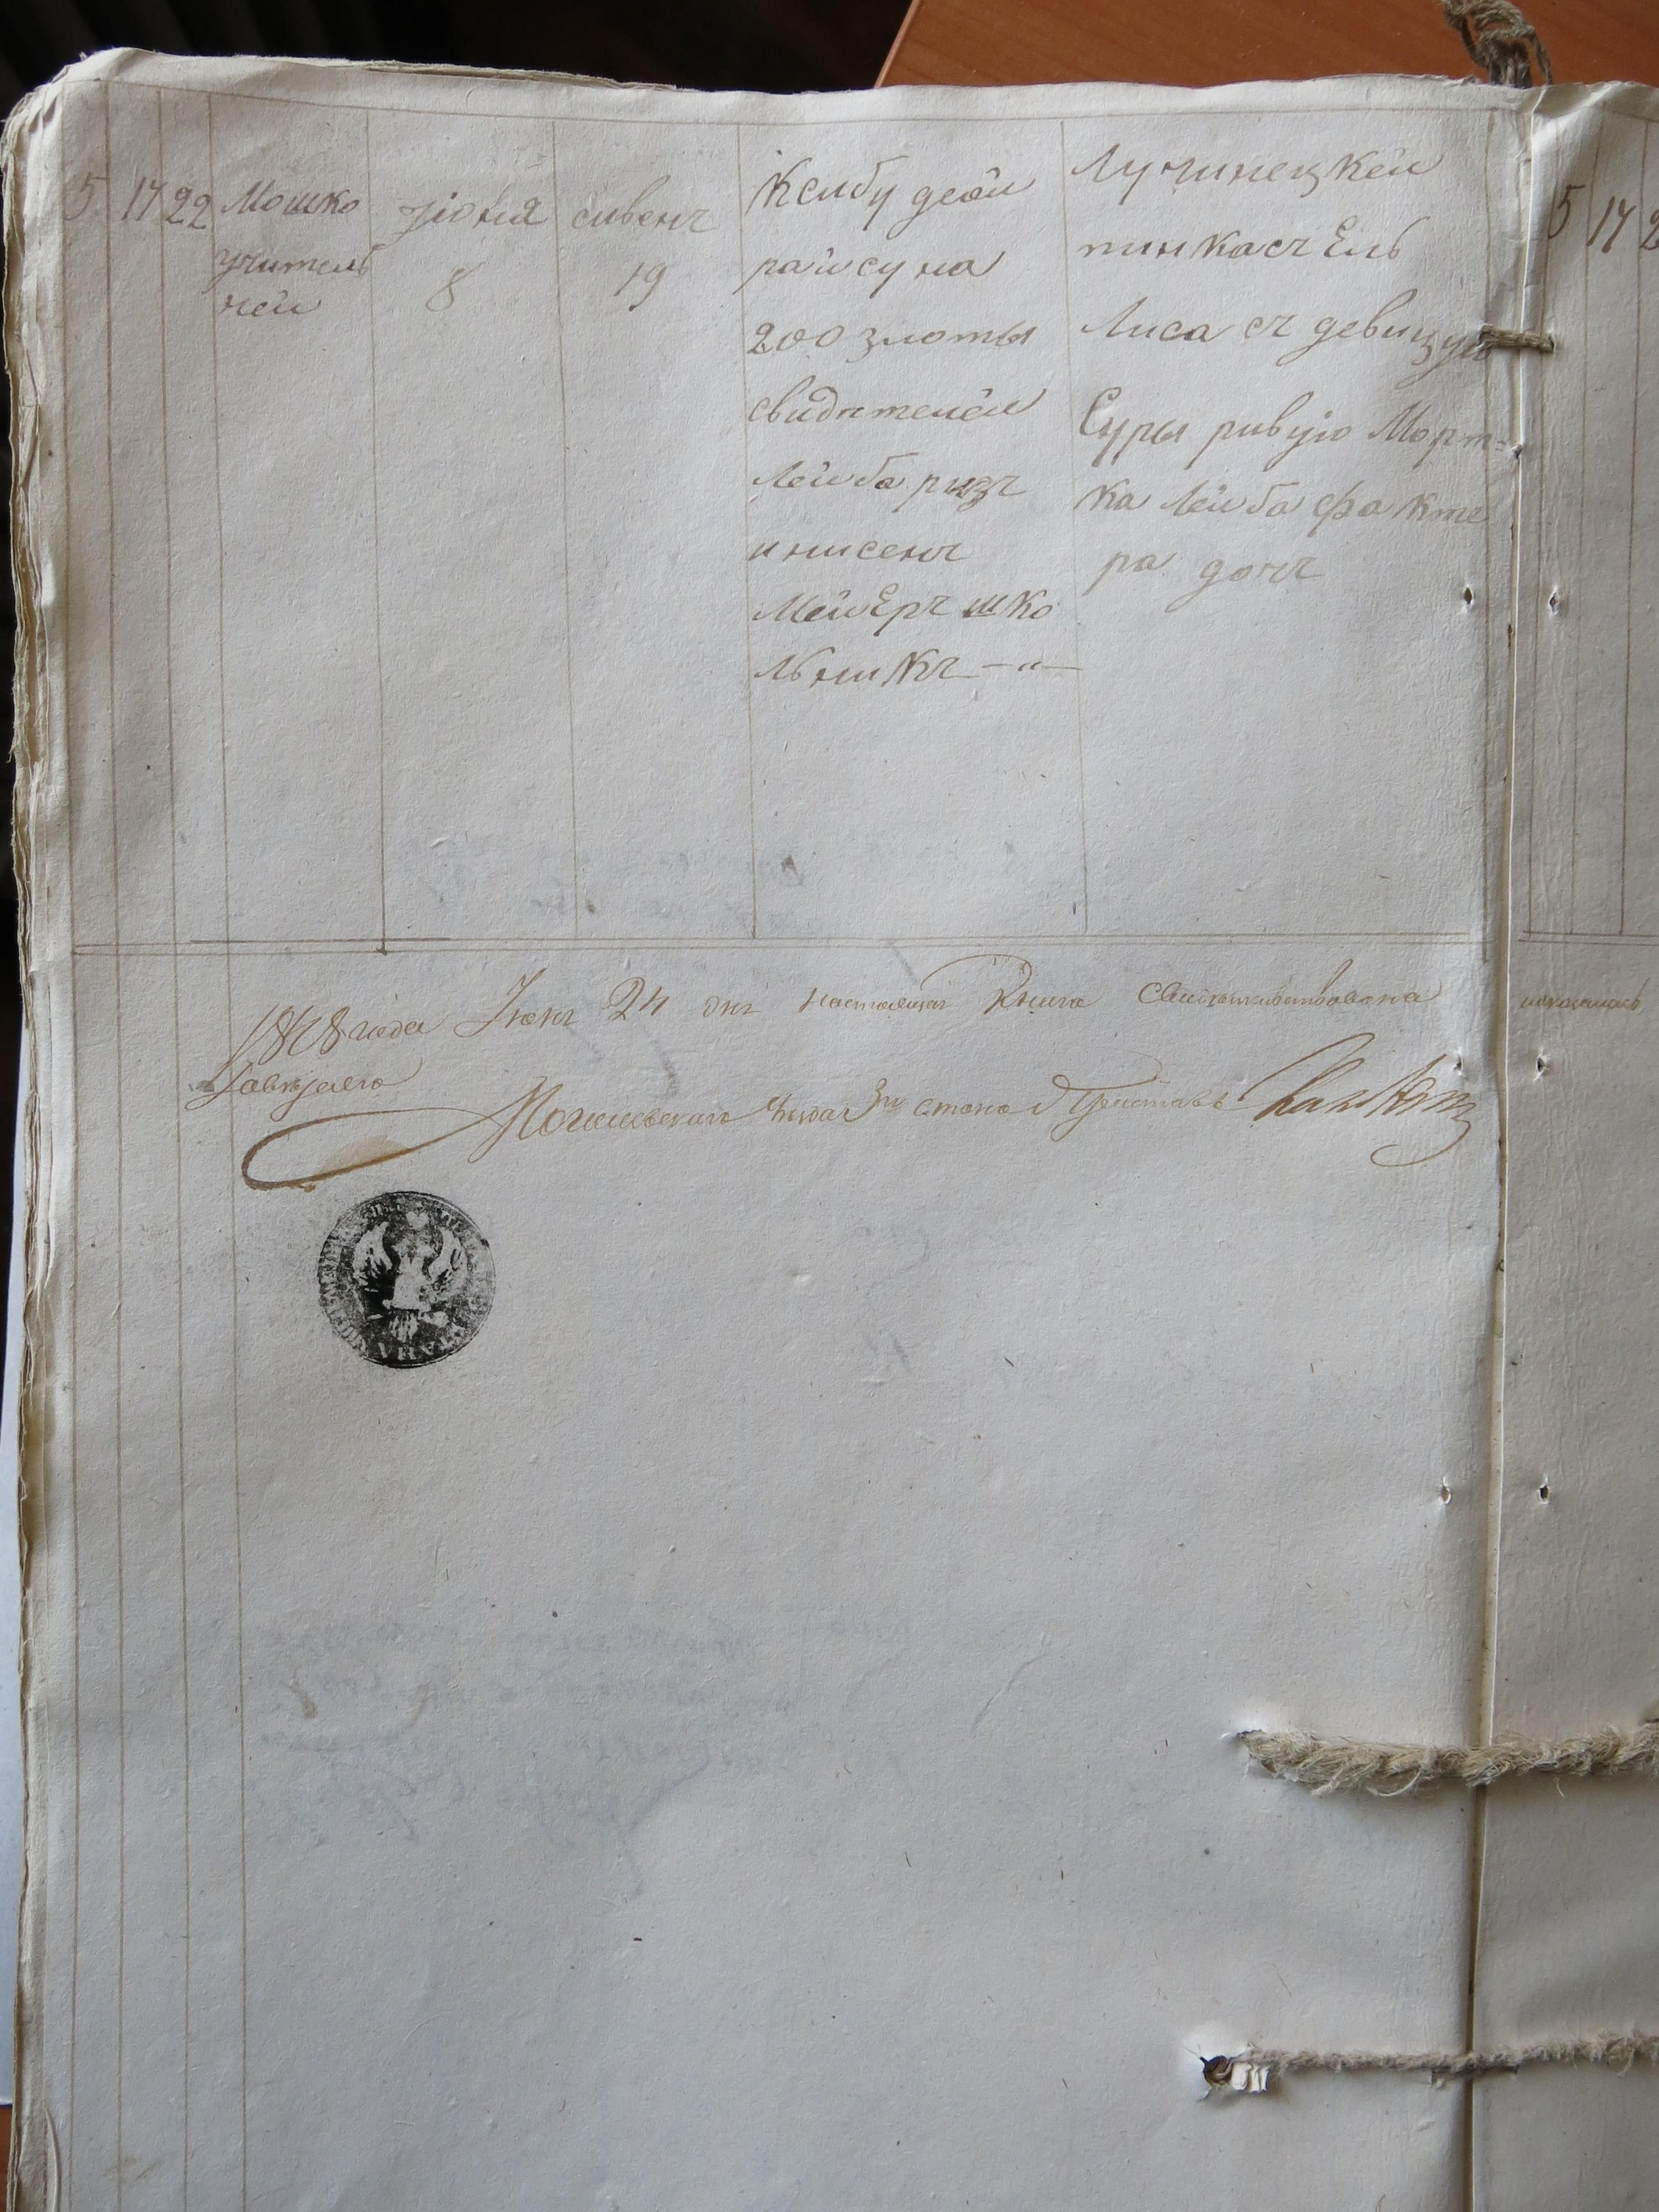 5 17 22 Мошко
учитель
ней
июня
8
сивенъ
19
Ксибу деой
райсу на
200 злоты
свидѣтелей
Лейба ризъ
и нисенъ
Мейеръ шко
льникъ —"—
Лучинецкей
пинкасъ Ель
Лиса съ девицую
Суры ривую Морт-
ка Лейба факто
ра дочъ
года Іюня 24 дня настоящая Книга свидѣтельствована
Могилевскаго уѣзда 3го стана Приставъ
5 17 2